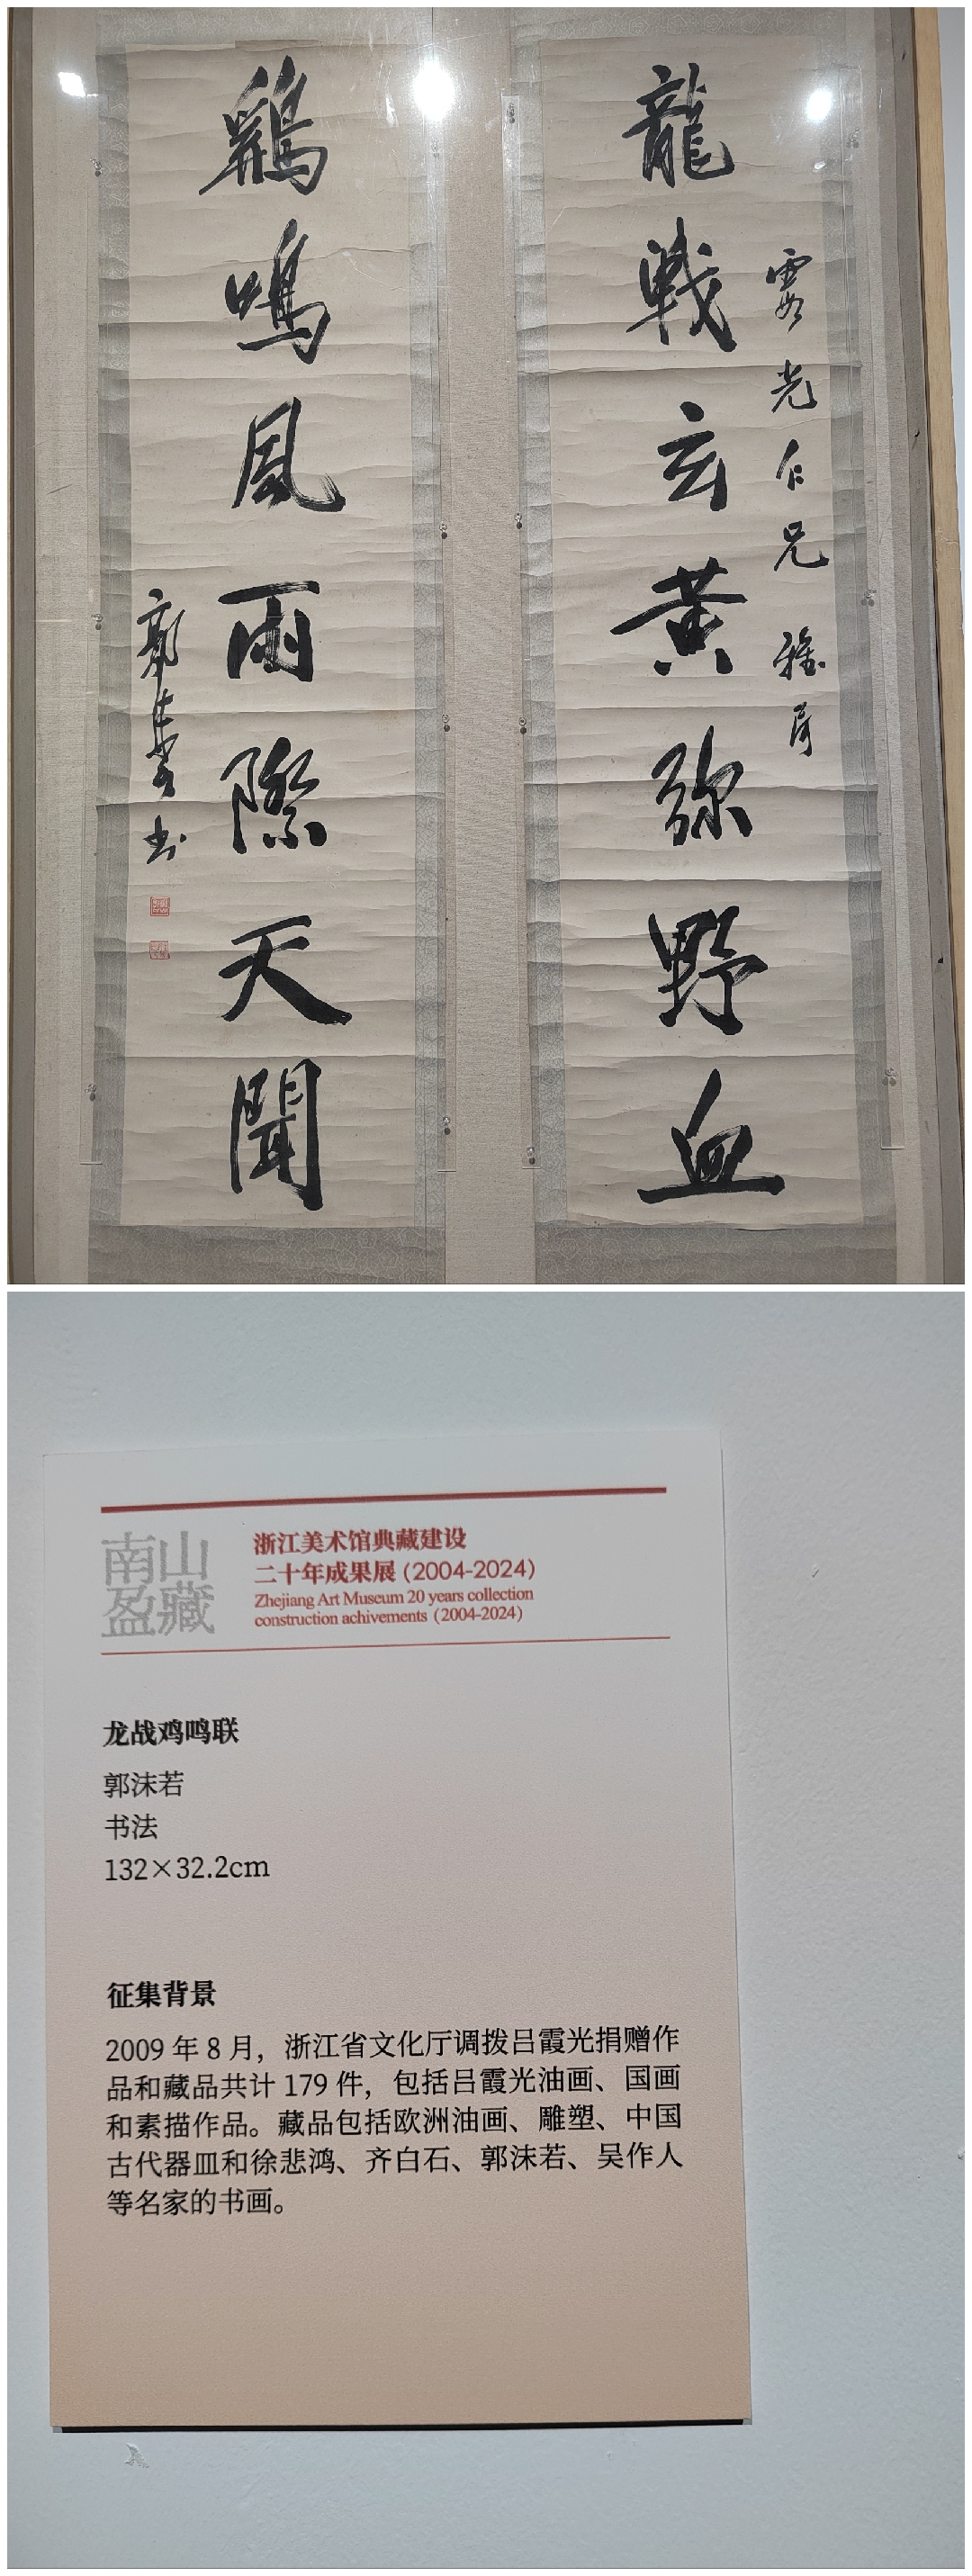 霞光仁兄 雅屬
龍戰玄黃弥野血
鷄鳴風雨際天聞
郭沫若書
南山
盈藏
浙江美术馆典藏建设
二十年成果展 (2004-2024)
Zhejiang Art Museum 20 years collection
construction achivements (2004-2024)
龙战鸡鸣联
郭沫若
书法
132×32.2cm
征集背景
2009 年 8 月，浙江省文化厅调拨吕霞光捐赠作
品和藏品共计 179 件，包括吕霞光油画、国画
和素描作品。藏品包括欧洲油画、雕塑、中国
古代器皿和徐悲鸿、齐白石、郭沫若、吴作人
等名家的书画。